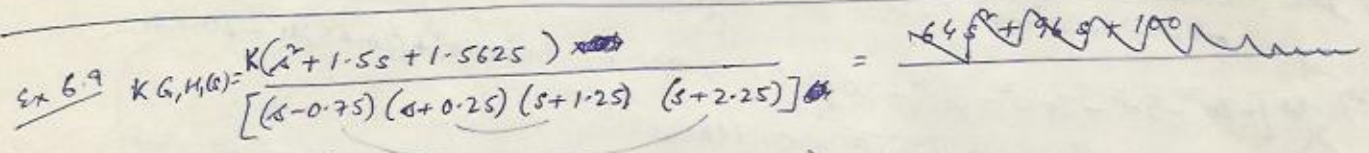 Ex 6.9 KG₁H₁(s) = K(s² + 1.5s + 1.5625) / [(s-0.75)(s+0.25)(s+1.25) (s+2.25)] =